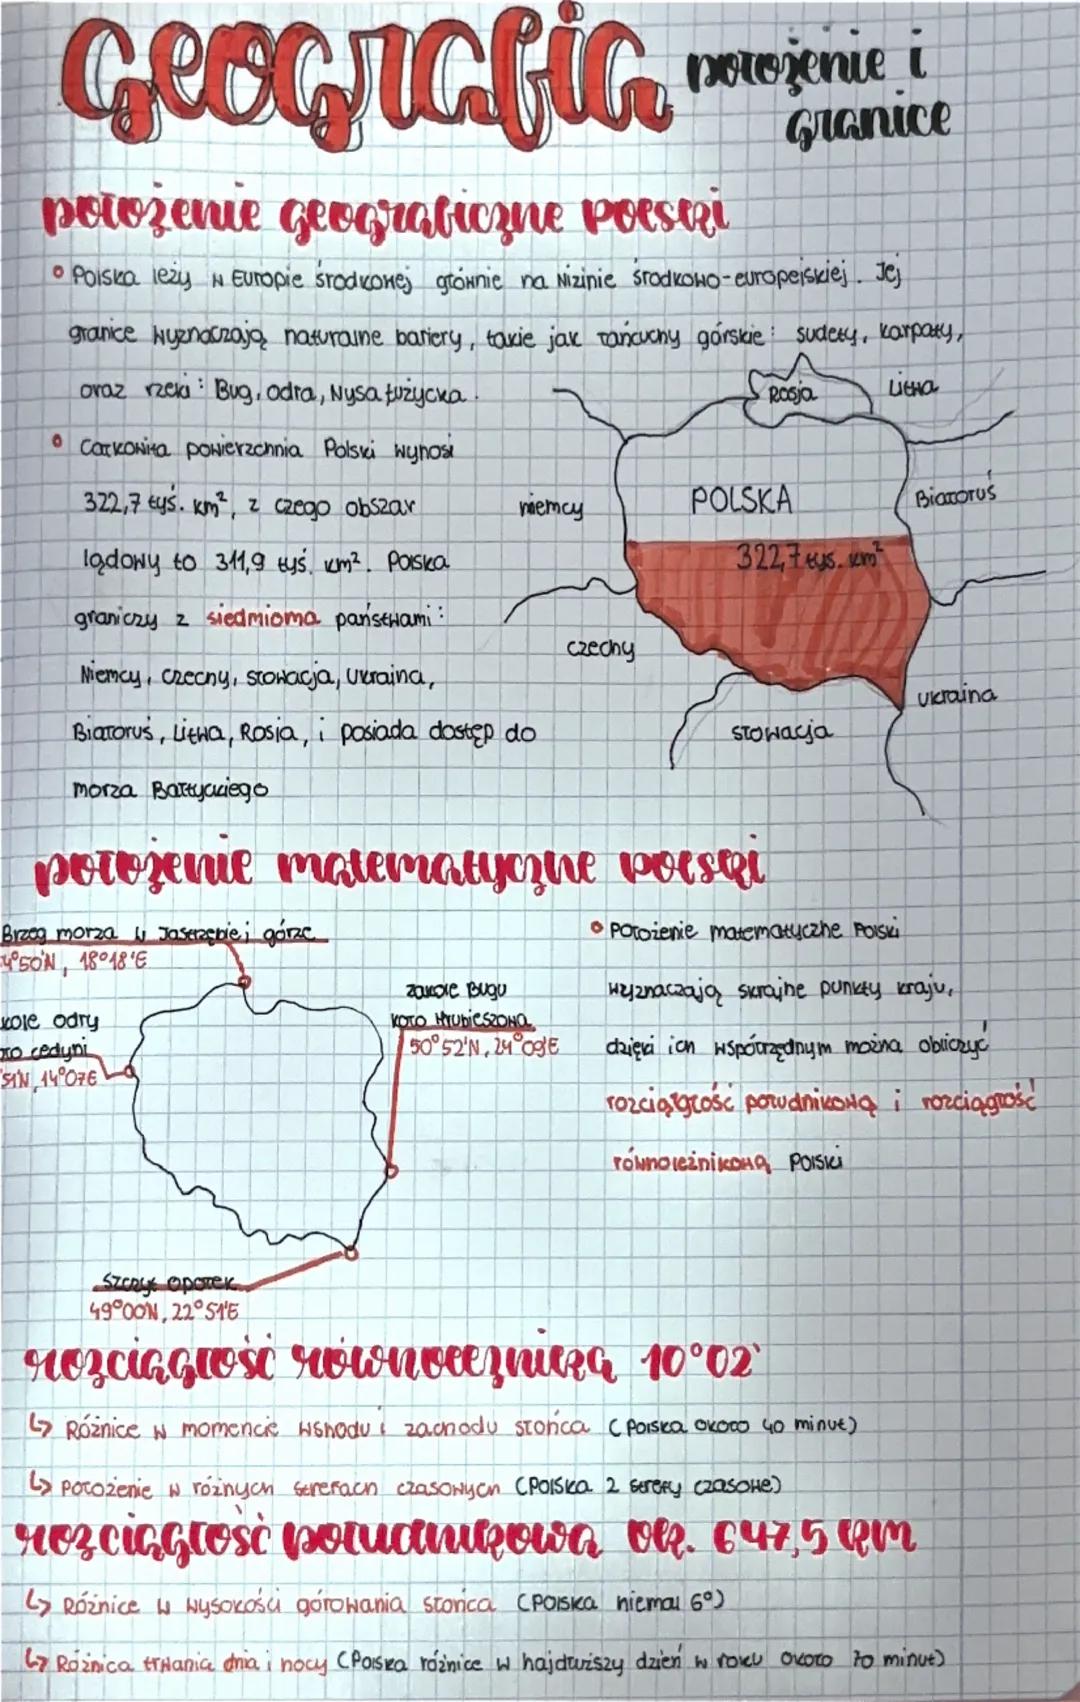 Geografia
położenie i
granice
położenie geograficzne polski
Polska leży w Europie środkowej głównie na Nizinie środkowo-europejskiej. Jej
granice wyznaczają naturalne bariery, takie jak łańcuchy górskie: sudety, Karpaty,
oraz rzeki: Bug, Odra, Nysa Łużycka.
Rosja
Litwa
Całkowita powierzchnia Polski wynosi
322,7 tyś. km², z czego obszar
niemcy
POLSKA
Białoruś
lądowy to 311,9 tyś. km². Polska
322,7 tys. km²
graniczy z siedmioma państwami:
czechy
Niemcy, Czechy, Słowacja, Ukraina,
ukraina
Białoruś, Litwa, Rosja, i posiada dostęp do
słowacja
morza Bałtyckiego
położenie matematyczne polski
Brzeg morza w Jastrzębiej górze
4°50'N, 18°18'E
Położenie matematyczne Polski
zakole Bugu
wyznaczają skrajne punkty kraju,
kole odry
koło Hrubieszowa
ło cedyni
50°52'N, 24°09'E
dzięki ich współrzędnym można obliczyć
51'N, 14°07'E
rozciągłość południkową i rozciągłość
równoleżnikową Polski
Szczyt Opołek
49°00'N, 22°51'E
rozciągłość równoleżniką 10°02'
↳ Różnice w momencie wshodu i zachodu słońca (Polska około 40 minut)
↳ Położenie w różnych sterefach czasowych (Polska 2 sterefy czasowe)
rozciągłość południkowa ok. 647,5 km
↳ Różnice w wysokości górowania słońca (Polska niemal 6°)
↳ Różnica trwania dnia i nocy (Polska różnice w najdłuższy dzień w roku około 70 minut)